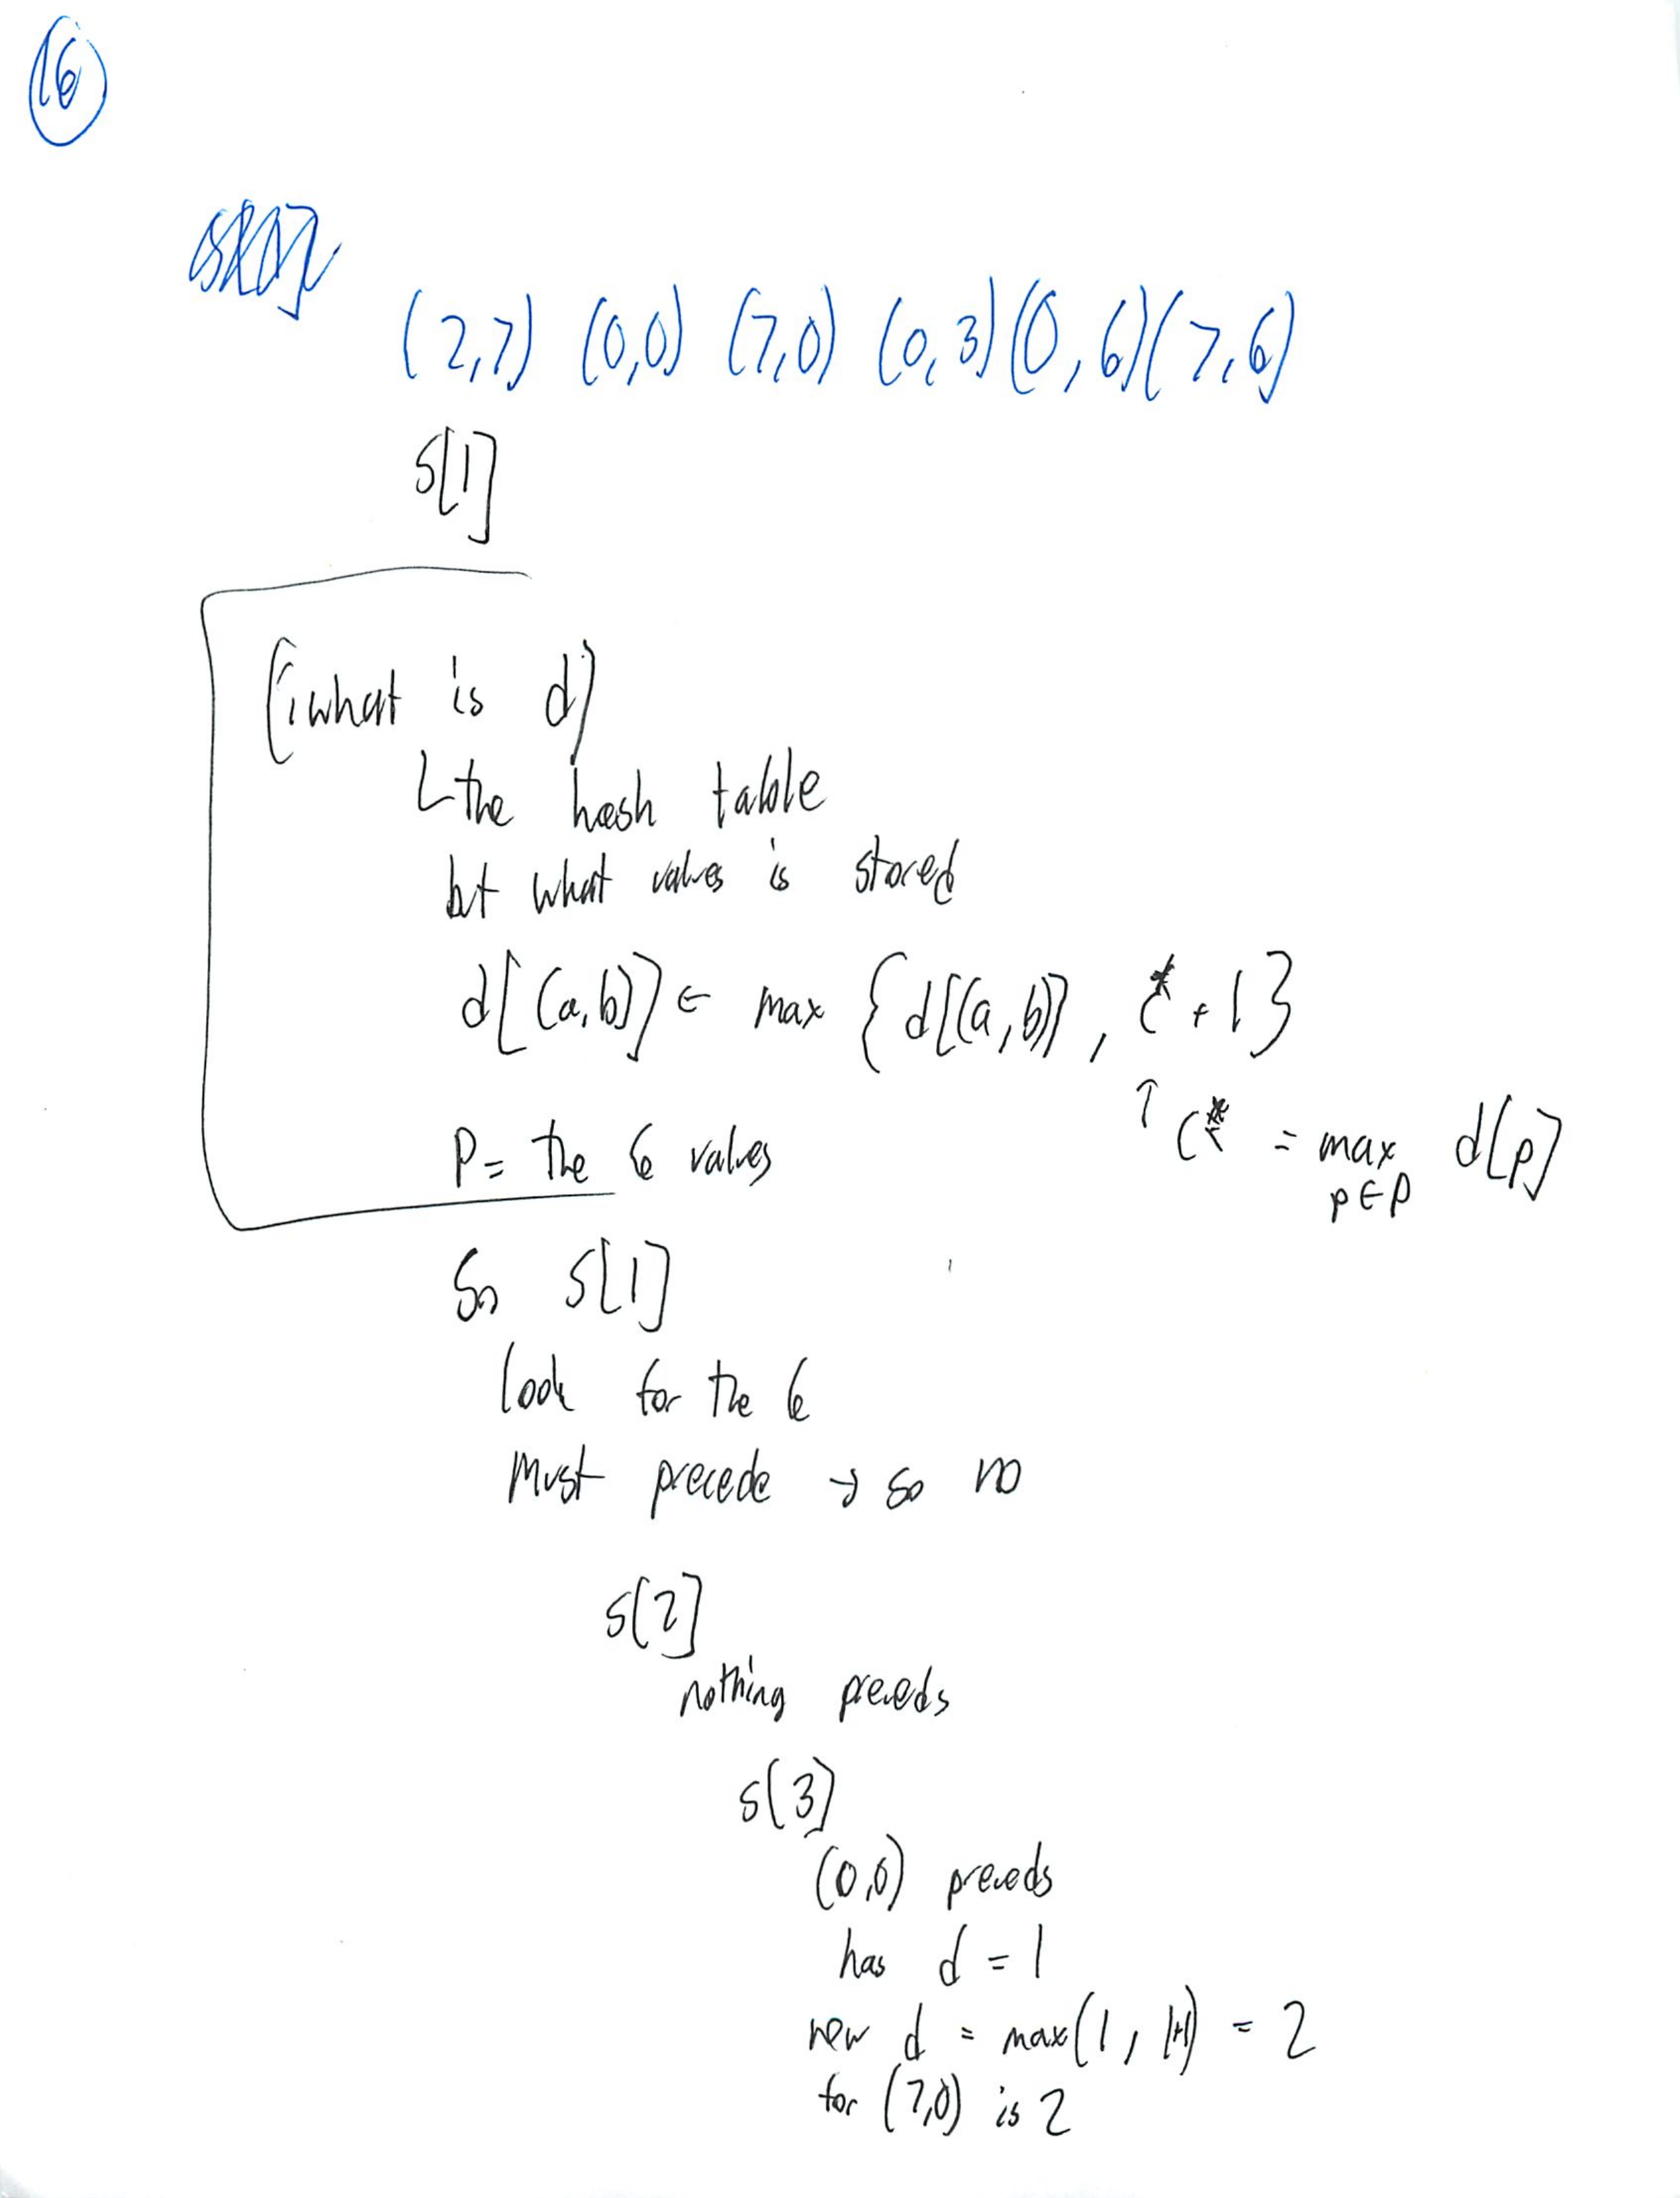 16
(2,7) (0,0) (7,0) (0,3) (0,6) (7,6)
s[1]
(what is d)
the hash table
bt what values is stored
d[(a,b)] ← max {d[(a,b)], c* + 1}
↑ c* = max d[p]
p∈P
P = the 6 values
So s[1]
look for the 6
Must precede → so no
s[2]
nothing preceds
s[3]
(0,0) preceds
has d = 1
new d = max(1, 1+1) = 2
for (7,0) is 2